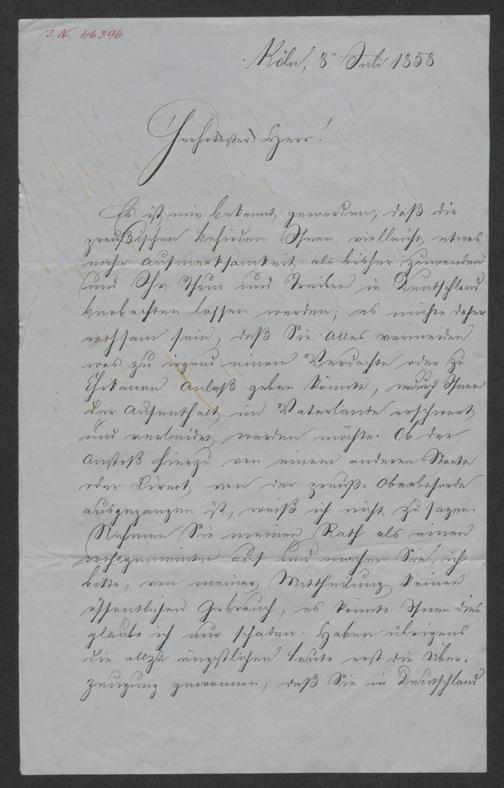 J. N. 46396
Köln, 8 Juli 1858
Geehrtester Herr!
Es ist mir bekannt geworden, daß die
preußischen Behörden Ihnen vielleicht etwas
mehr Aufmerksamkeit als bisher zuwenden
und Ihr Thun und Treiben in Deutschland
beobachten lassen werden; es möchte daher
rathsam sein, daß Sie Alles vermeiden
was zu irgend einem Verdachte oder zu
Chikanen Anlaß geben könnte, wodurch Ihnen
der Aufenthalt im Vaterlande erschwert
und verleidet werden möchte. Ob der
Anstoß hierzu von einem anderen Staate
oder direct von der preuß. Oberbehörde
ausgegangen ist, weiß ich nicht zu sagen.
Nehmen Sie meinen Rath als einen
wohlgemeinten auf und machen Sie, ich
bitte, von meiner Mittheilung keinen
öffentlichen Gebrauch, es könnte Ihnen dies
glaube ich nur schaden. Haben übrigens
die allzu ängstlichen Leute erst die Ueber-
zeugung gewonnen, daß Sie in Deutschland